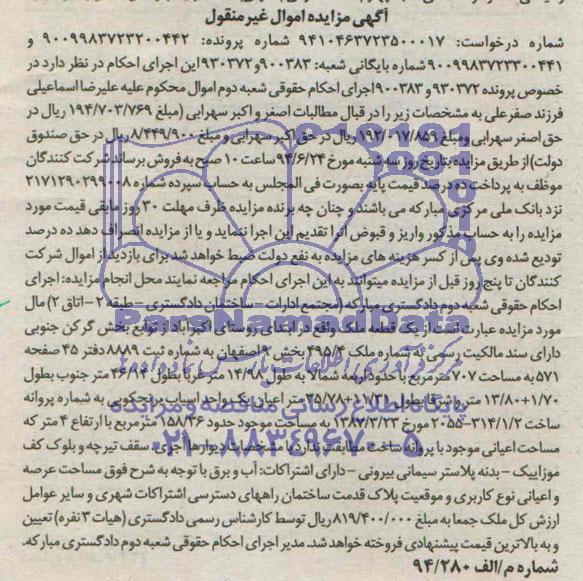 آگهی مزایده اموال غیر منقول
شماره درخواست: ۹۴۱۰۴۶۳۷۲۳۵۰۰۰۱۷ شماره پرونده: ۹۰۰۹۹۸۳۷۲۳۲۰۰۴۴۲ و
۹۰۰۹۹۸۳۷۲۳۳۰۰۴۴۱ شماره بایگانی شعبه: ۹۰۰۳۸۳ و ۹۳۰۳۷۲ این اجرای احکام در نظر دارد در
خصوص پرونده ۹۳۰۳۷۲ و ۹۰۰۳۸۳ اجرای احکام حقوقی شعبه دوم اموال محکوم علیه علیرضا اسماعیلی
فرزند صفرعلی به مشخصات زیر را در قبال مطالبات اصغر و اکبر سهرابی (مبلغ ۱۹۴/۷۰۳/۷۶۹ ریال در
حق اصغر سهرابی ومبلغ ۱۹۲/۰۱۷/۸۵۹ ریال در حق اکبر سهرابی و مبلغ ۸/۴۴۹/۹۰۰ ریال در حق صندوق
دولت) از طریق مزایده بتاریخ روز سه شنبه مورخ ۹۴/۶/۲۴ ساعت ۱۰ صبح به فروش برساند شرکت کنندگان
موظف به پرداخت ده درصد قیمت پایه بصورت فی المجلس به حساب سپرده شماره ۲۱۷۱۲۹۰۲۹۹۰۰۸
نزد بانک ملی مرکزی مبارکه می باشند و چنان چه برنده مزایده ظرف مهلت ۳۰ روز مابقی قیمت مورد
مزایده را به حساب مذکور واریز و قبوض آنرا تقدیم این اجرا ننماید و یا از مزایده انصراف دهد ده درصد
تودیع شده وی پس از کسر هزینه های مزایده به نفع دولت ضبط خواهد شد برای بازدید از اموال شرکت
کنندگان تا پنج روز قبل از مزایده میتوانند به این اجرای احکام مراجعه نمایند محل انجام مزایده: اجرای
احکام حقوقی شعبه دوم دادگستری مبارکه (مجتمع ادارات – ساختمان دادگستری – طبقه ۲ – اتاق ۲) مال
مورد مزایده عبارت است از یک قطعه ملک واقع در ابتدای روستای اکبرآباد از توابع بخش گرکن جنوبی
دارای سند مالکیت رسمی به شماره ملک ۴۹۵/۴ بخش ۹ اصفهان به شماره ثبت ۸۸۸۹ دفتر ۴۵ صفحه
۵۷۱ به مساحت ۷۰۷ متر مربع با حدود اربعه شمالا به طول ۱۴/۹۸ متر غربا بطول ۴۶/۹۴ متر جنوب بطول
۱۳/۸۰+۱/۷۰ متر و شرقا بطول ۱۱/۲۱+۳۵/۷۸ متر اعیان یک واحد آسیاب برنجکوبی به شماره پروانه
ساخت ۲۰۵۵-۳۱۴/۱/۲ مورخ ۱۳۸۷/۳/۲۳ به مساحت موجود حدود ۱۵۸/۳۶ متر مربع با ارتفاع ۴ متر که
مساحت اعیانی موجود با پروانه ساخت مطابقت ندارد، مشخصات دیوارها آجری، سقف تیرچه و بلوک کف
موزاییک – بدنه پلاستر سیمانی بیرونی – دارای اشتراکات: آب و برق با توجه به شرح فوق مساحت عرصه
و اعیانی نوع کاربری و موقعیت پلاک قدمت ساختمان راههای دسترسی اشتراکات شهری و سایر عوامل
ارزش کل ملک جمعا به مبلغ ۸۱۹/۴۰۰/۰۰۰ ریال توسط کارشناس رسمی دادگستری (هیات ۳ نفره) تعیین
و به بالاترین قیمت پیشنهادی فروخته خواهد شد. مدیر اجرای احکام حقوقی شعبه دوم دادگستری مبارکه.
شماره م/الف ۹۴/۲۸۰
ParsNamadData
پایگاه اطلاع رسانی مناقصه و مزایده
۰۲۱-۸۸۳۴۹۶۷۰-۵